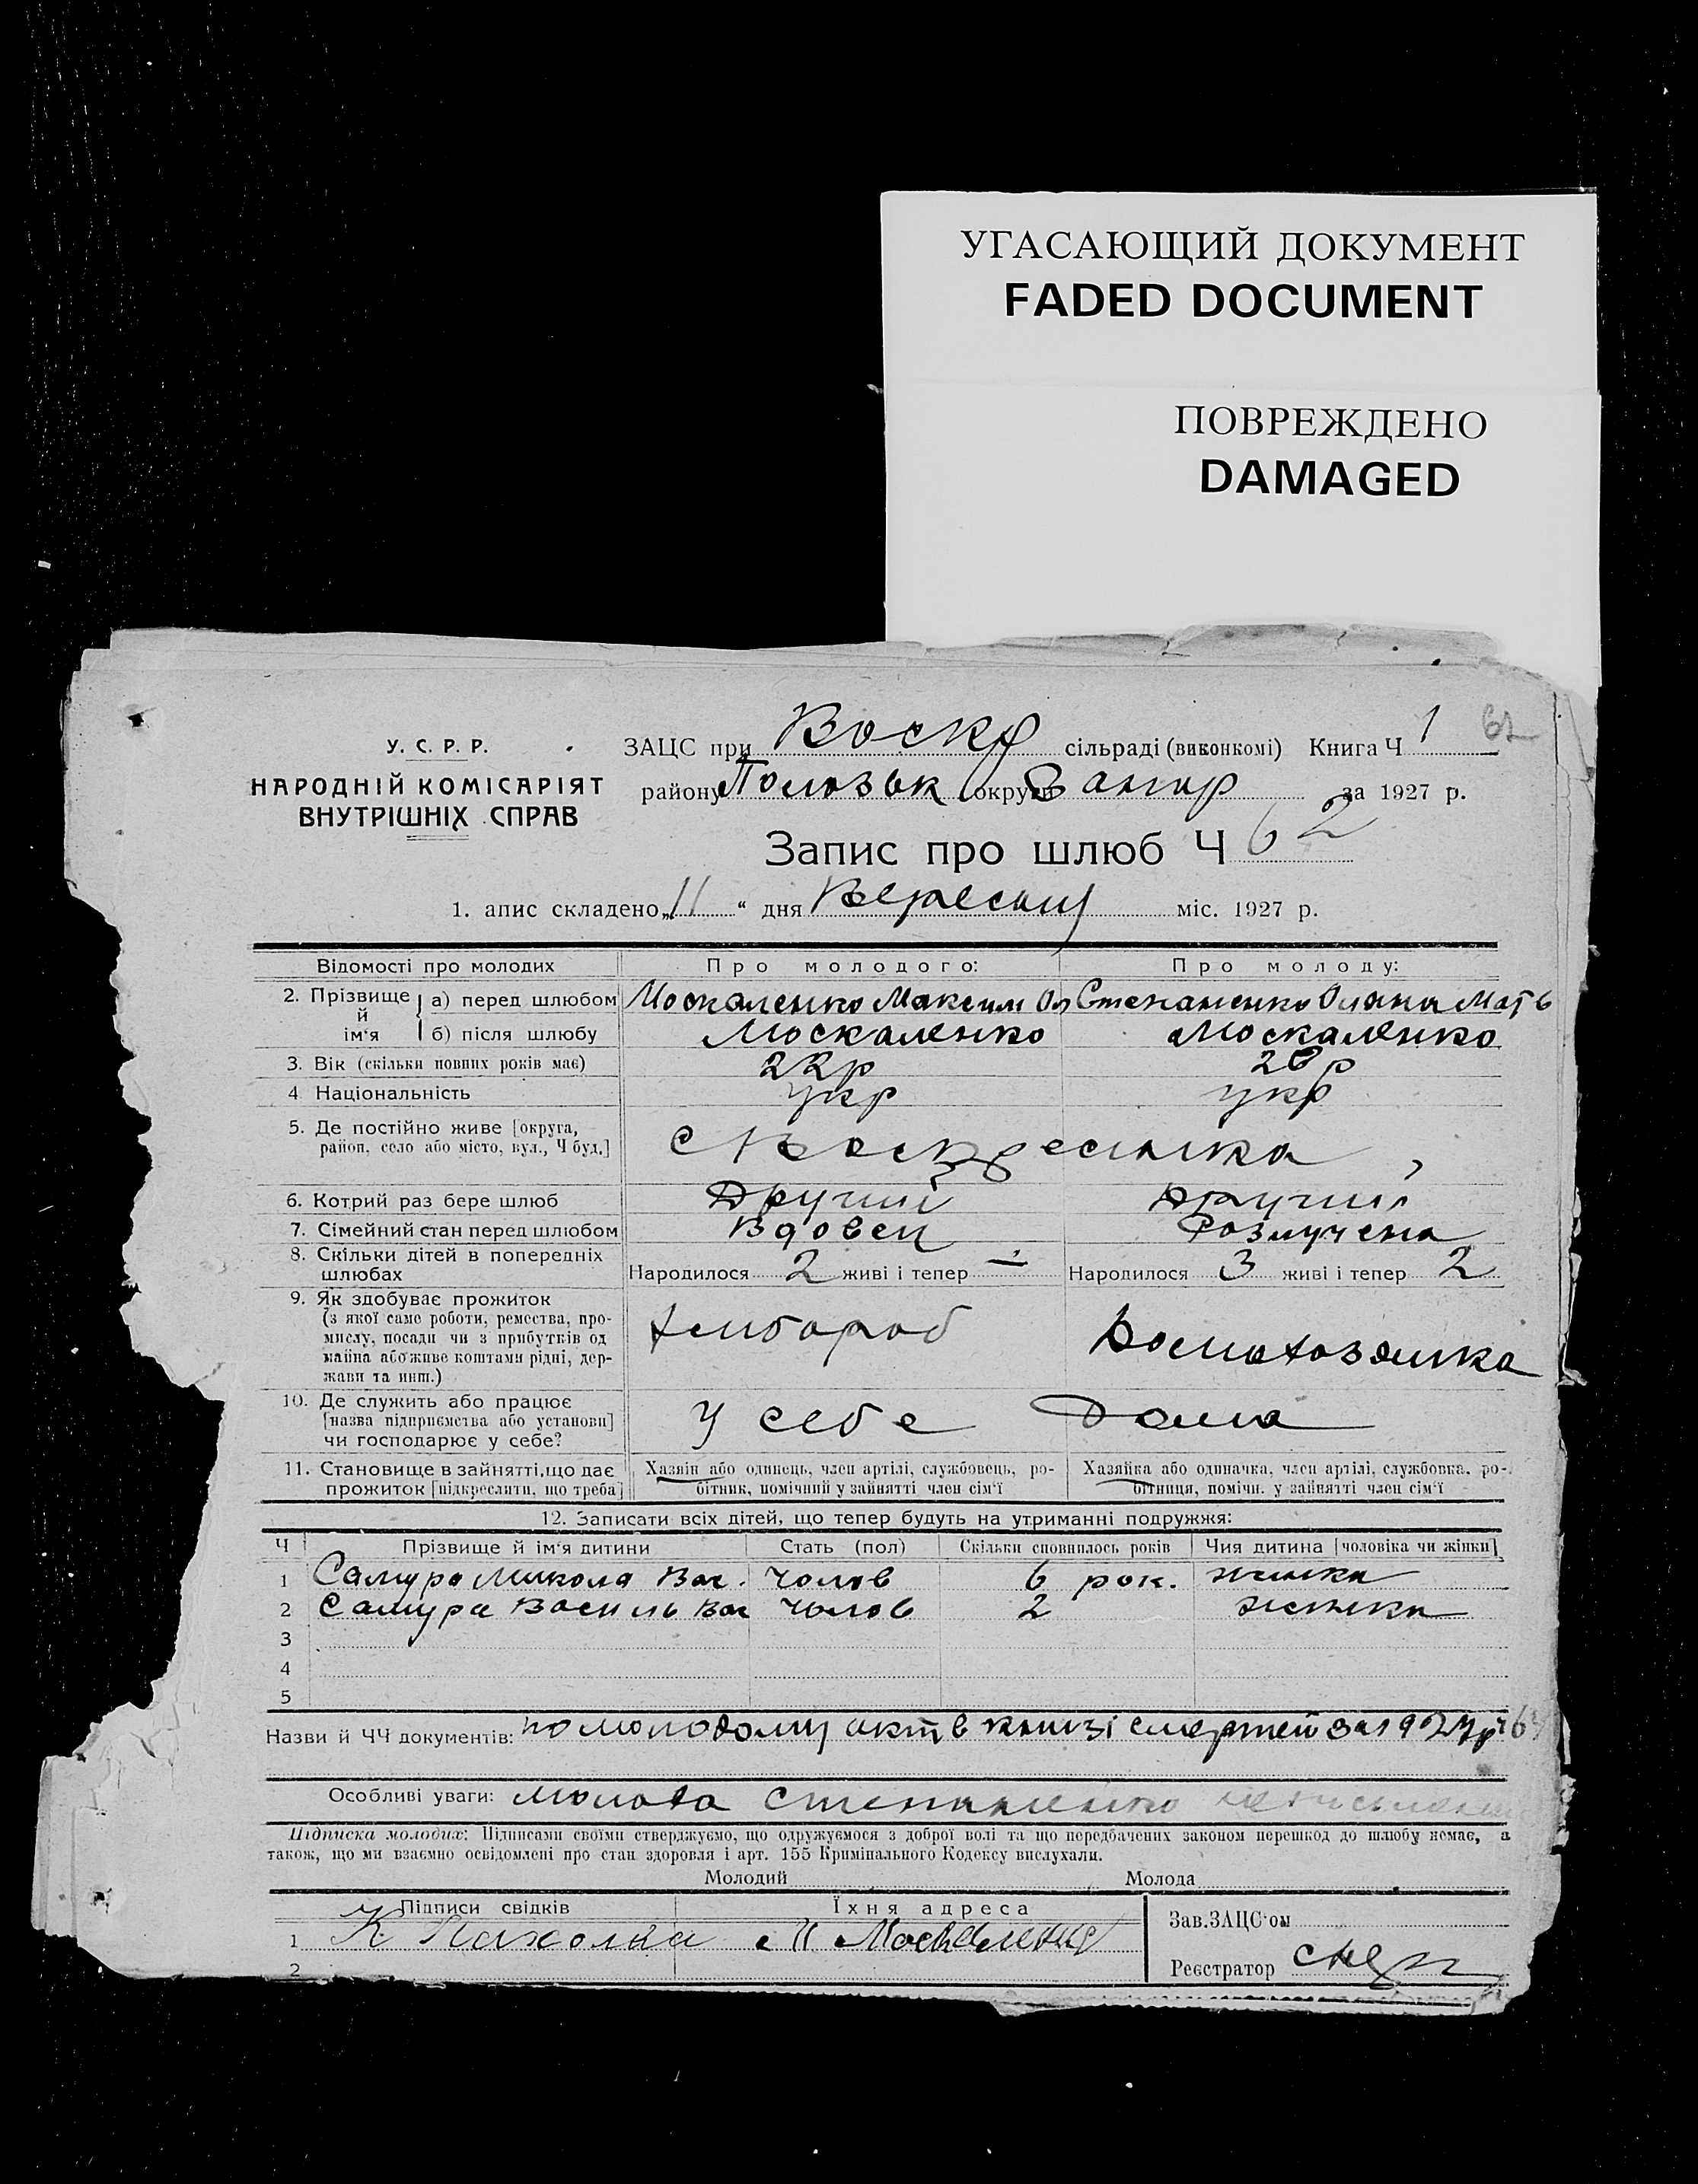 УГАСАЮЩИЙ ДОКУМЕНТ
FADED DOCUMENT
ПОВРЕЖДЕНО
DAMAGED
У. С. Р. Р.
НАРОДНІЙ КОМІСАРІЯТ
ВНУТРІШНІХ СПРАВ
ЗАЦС при Воскр сільраді (виконкомі) Книга Ч 1 62
району Пологівськ округи Запор за 1927 р.
Запис про шлюб Ч 62
1. апис складено „11“ дня Вересня міс. 1927 р.
Відомості про молодих Про молодого: Про молоду:
2. Прізвище й ім‘я а) перед шлюбом Москаленко Максим Ол Степаненко Оляна Матв
б) після шлюбу Москаленко Москаленко
3. Вік (скільки повних років має) 22р 28р
4 Національність укр укр
5. Де постійно живе [округа,
район, село або місто, вул., Ч буд.] с Воскресенка
6. Котрий раз бере шлюб Другий Другий
7. Сімейний стан перед шлюбом Вдовец Розлучена
8. Скільки дітей в попередніх
шлюбах Народилося 2 живі і тепер — Народилося 3 живі і тепер 2
9. Як здобуває прожиток
(з якої саме роботи, ремества, про-
мислу, посади чи з прибутків од
майна або живе коштами рідні, дер-
жави та инш.) хлібороб Домохозяйка
10. Де служить або працює
[назва підприємства або установи]
чи господарює у себе? У себе Дома
11. Становище в зайнятті, що дає
прожиток [підкреслити, що треба]
Хазяін або одинець, член артілі, службовець, ро-
бітник, помічний у зайнятті член сім‘ї
Хазяйка або одиначка, член артілі, службовка, ро-
бітниця, помічн. у зайнятті член сім‘ї
12. Записати всіх дітей, що тепер будуть на утриманні подружжя:
Ч Прізвище й ім‘я дитини Стать (пол) Скільки сповнилось років Чия дитина [чоловіка чи жінки]
1 Самура Микола Вас. Чолов 6 рок. жінка
2 Самура Василь Вас Чолов 2 жінка
3
4
5
Назви й ЧЧ документів: по молодому акт в книзі смертей за 1927р
Особливі уваги: молода Степаненко неписьменна
Підписка молодих: Підписами своїми стверджуємо, що одружуємося з доброї волі та що передбачених законом перешкод до шлюбу немає, а
також, що ми взаємно освідомлені про стан здоровля і арт. 155 Кримінального Кодексу вислухали.
Молодий Молода
Підписи свідків Їхня адреса
1 К Пахолка
2
Зав.ЗАЦС‘ом
Реєстратор